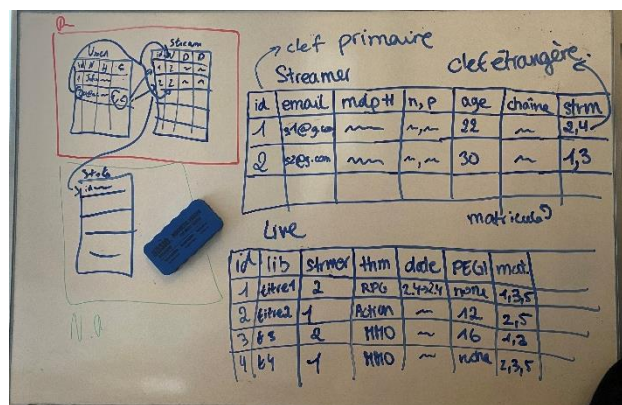 clef primaire
clef étrangère
Streamer
id email mdpH n,p age chaîne strm
1 s1@g.com ~ ~,~ 22 ~ 2,4
2 s2@g.com ~ ~,~ 30 ~ 1,3
matricule
Live
id lib strmer thm date PEGI mat
1 titre1 2 RPG 24>24 none 1,3,5
2 titre2 1 Action ~ 12 2,5
3 t3 2 MMO ~ 16 1,2
4 t4 1 MMO ~ none 2,3,5
stream
N.a